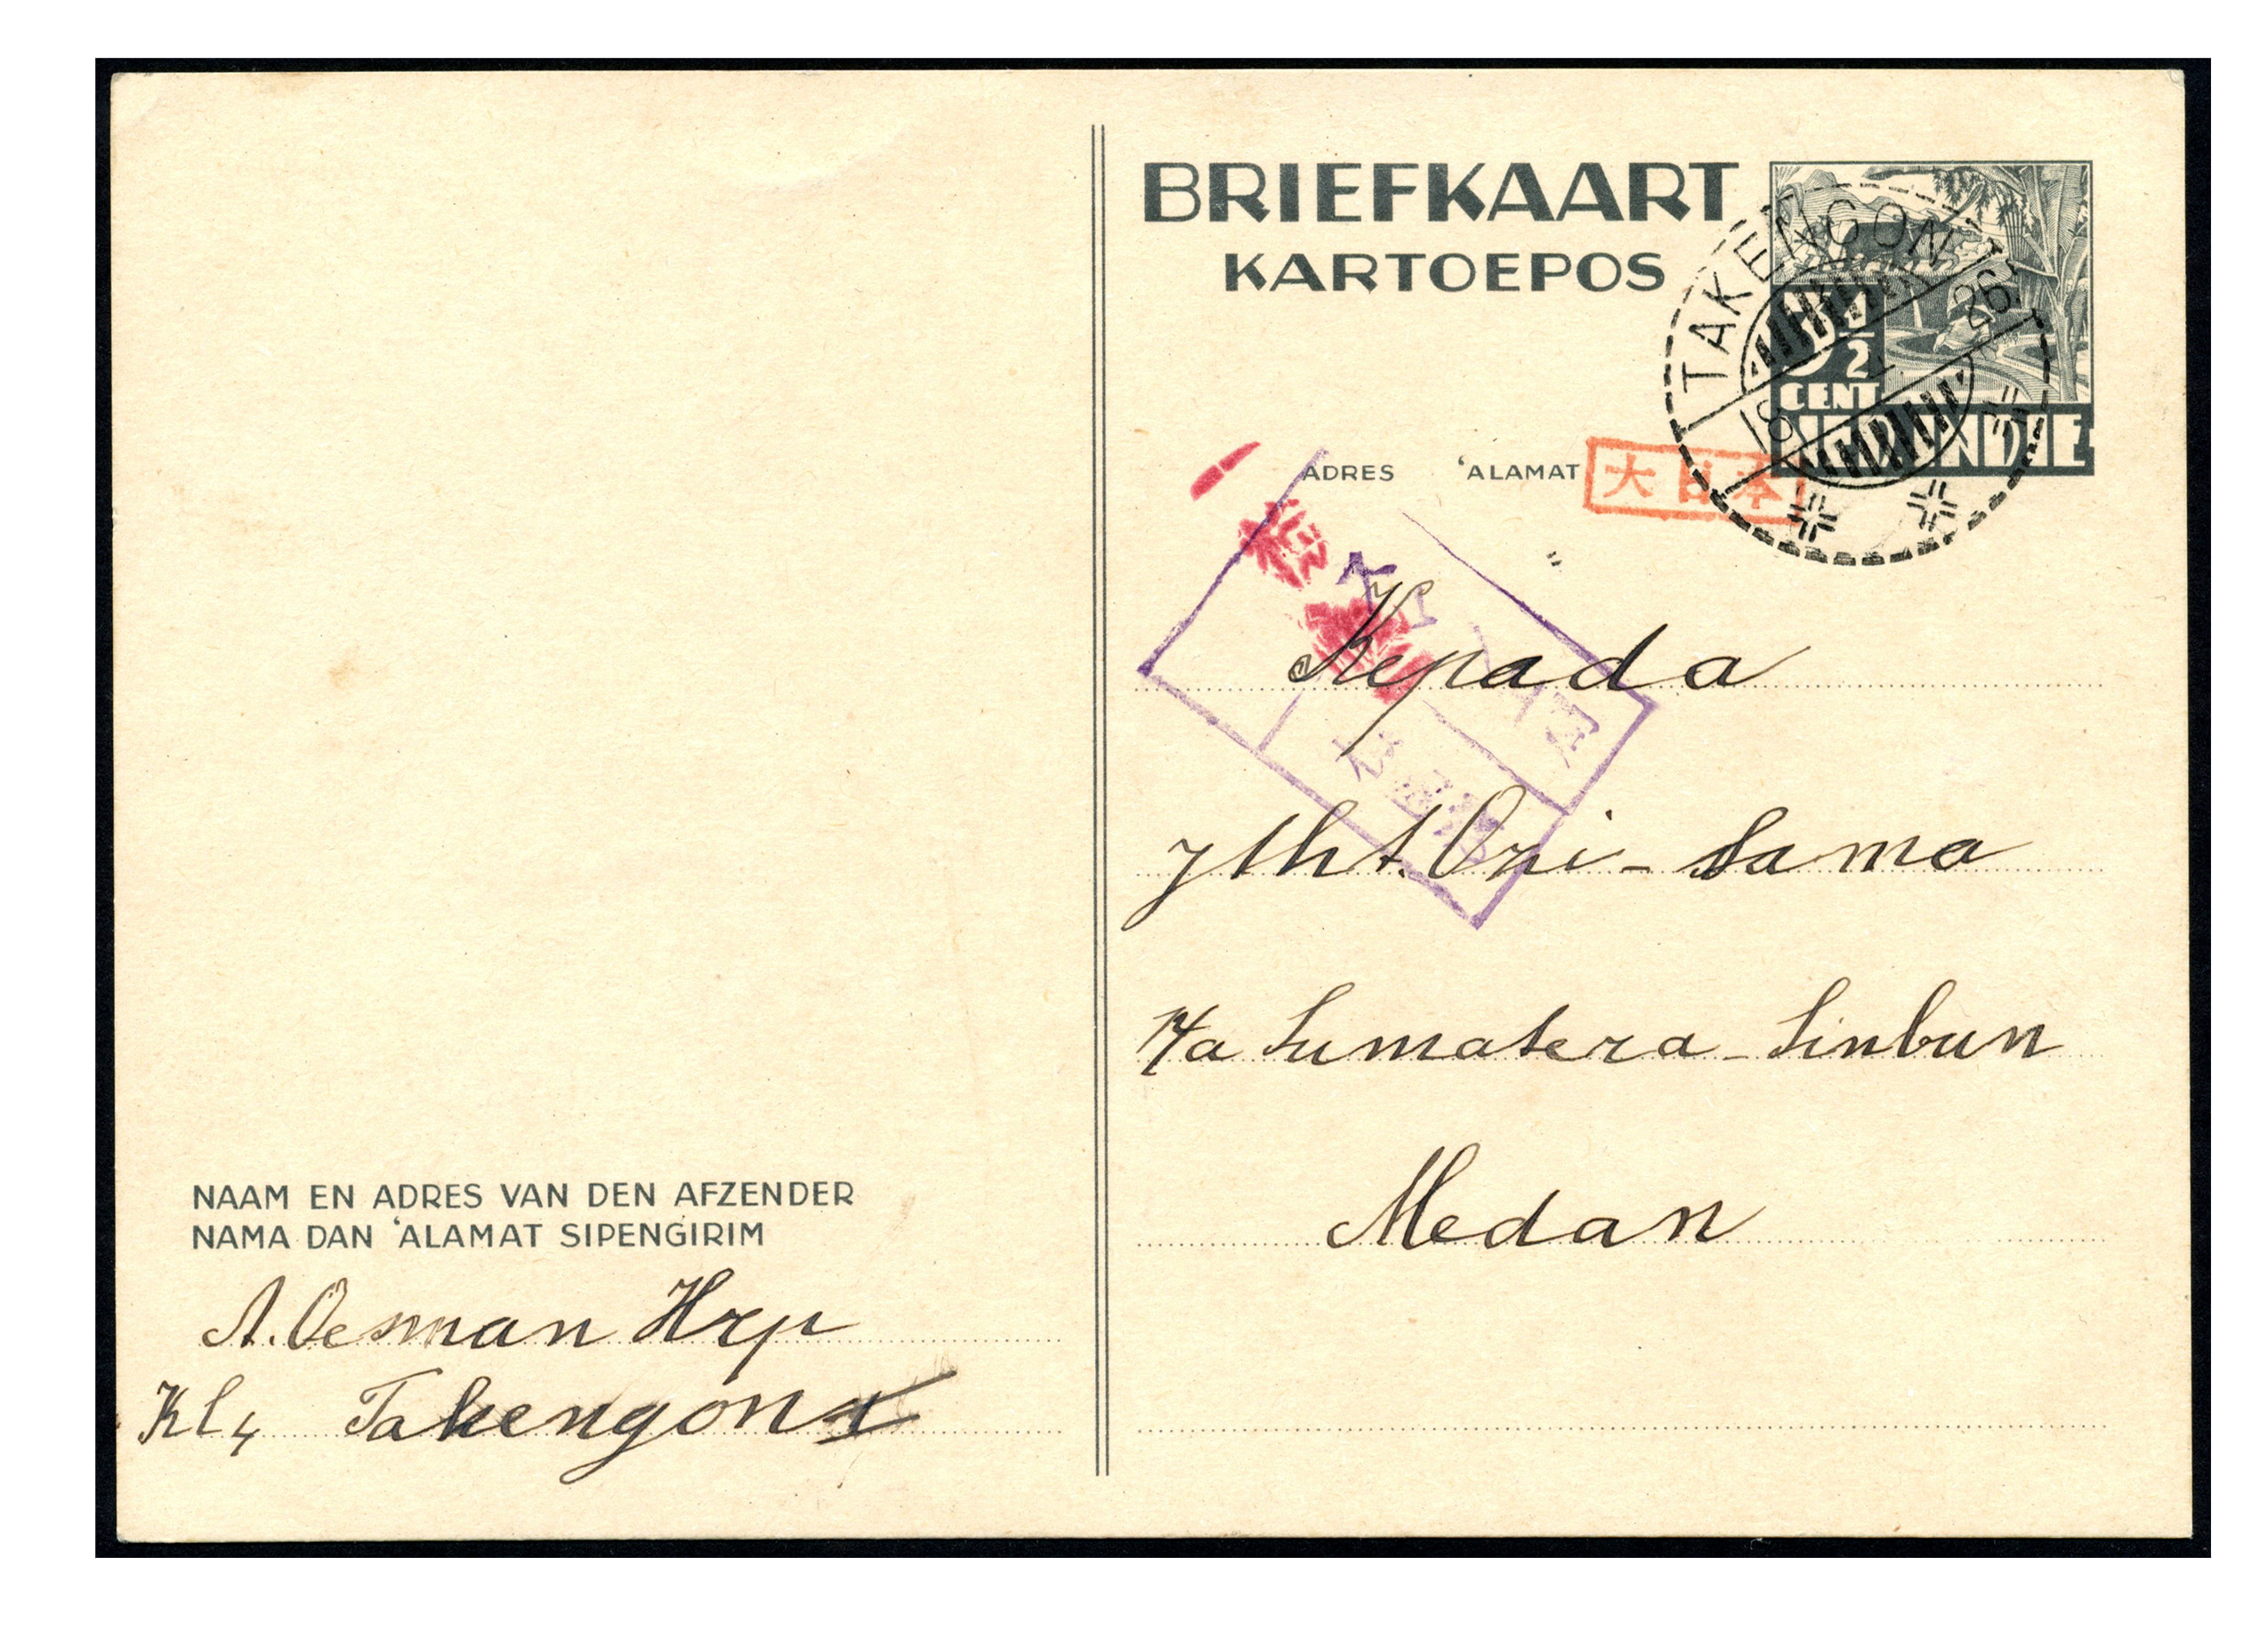 BRIEFKAART
KARTOEPOS
TAKENGON
26
1/2
CENT
NED. INDIE
ADRES 'ALAMAT
大日本
Kepada
Jtht. Ori-Sama
p/a Sumatera-Sinbun
Medan
NAAM EN ADRES VAN DEN AFZENDER
NAMA DAN 'ALAMAT SIPENGIRIM
A. Oesman Hrp
Kl4 Takengon